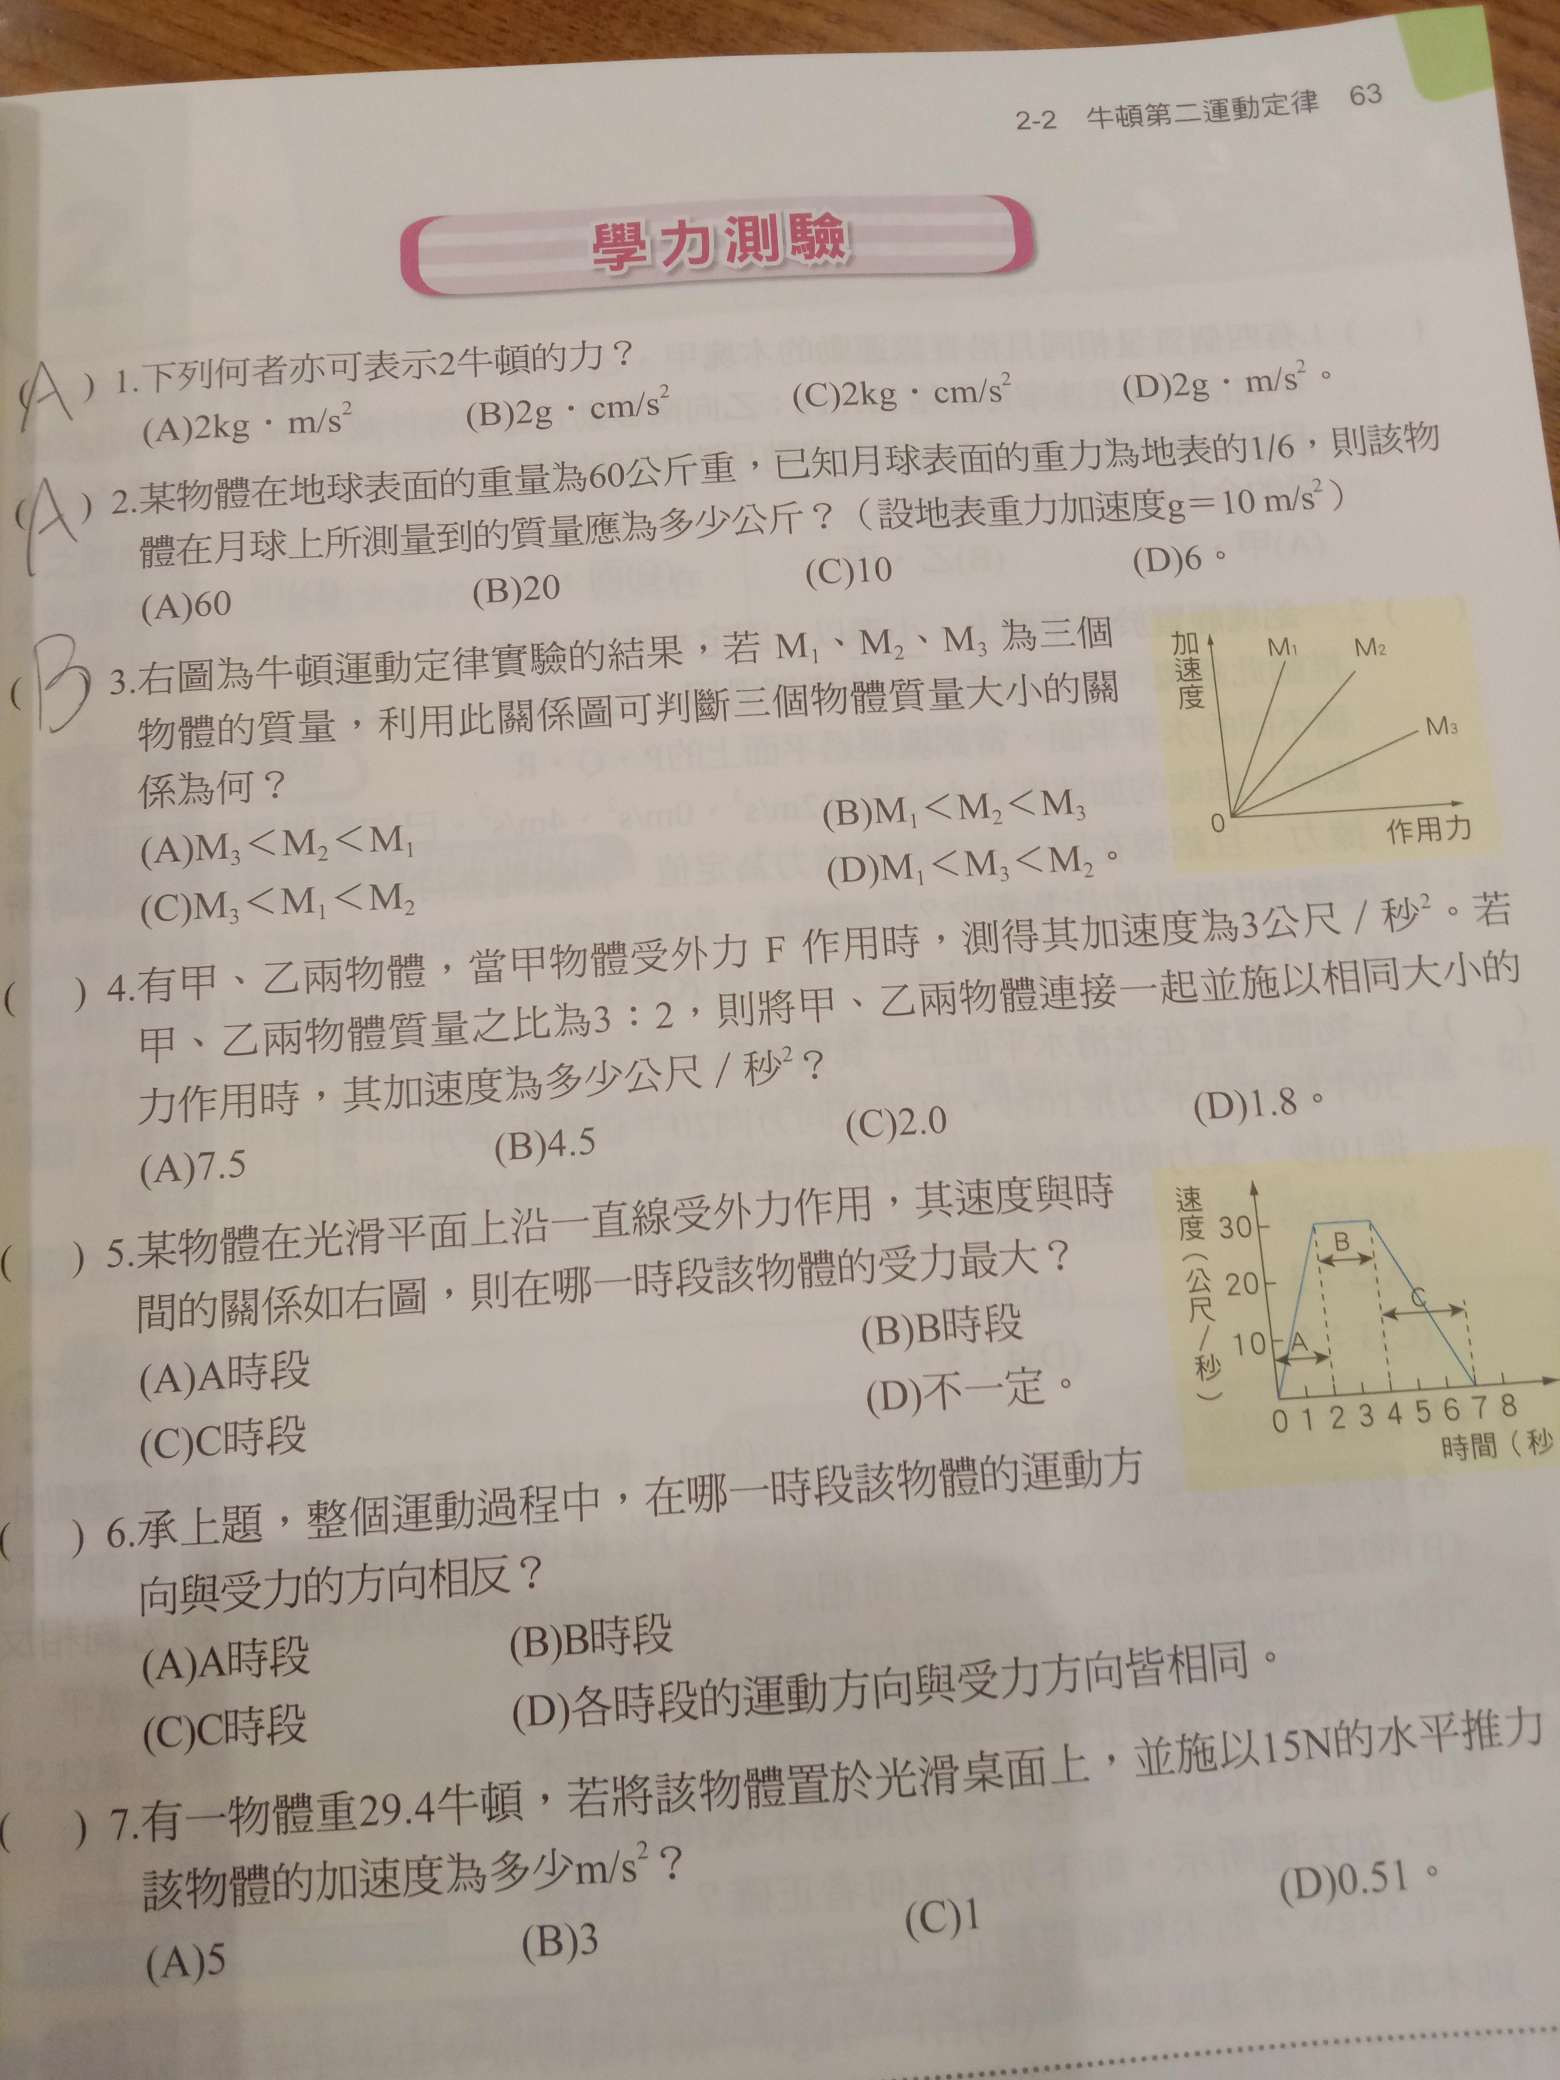 2-2 牛頓第二運動定律 63
學力測驗
(A) 1.下列何者亦可表示2牛頓的力？
(A)2kg・m/s² (B)2g・cm/s² (C)2kg・cm/s² (D)2g・m/s²。
(A) 2.某物體在地球表面的重量為60公斤重，已知月球表面的重力為地表的1/6，則該物
體在月球上所測量到的質量應為多少公斤？（設地表重力加速度g＝10 m/s²）
(A)60 (B)20 (C)10 (D)6。
(B) 3.右圖為牛頓運動定律實驗的結果，若 M₁、M₂、M₃ 為三個
物體的質量，利用此關係圖可判斷三個物體質量大小的關
係為何？
(A)M₃＜M₂＜M₁ (B)M₁＜M₂＜M₃
(C)M₃＜M₁＜M₂ (D)M₁＜M₃＜M₂。
加速度
M₁
M₂
M₃
0
作用力
( ) 4.有甲、乙兩物體，當甲物體受外力 F 作用時，測得其加速度為3公尺／秒²。若
甲、乙兩物體質量之比為3：2，則將甲、乙兩物體連接一起並施以相同大小的
力作用時，其加速度為多少公尺／秒²？
(A)7.5 (B)4.5 (C)2.0 (D)1.8。
( ) 5.某物體在光滑平面上沿一直線受外力作用，其速度與時
間的關係如右圖，則在哪一時段該物體的受力最大？
(A)A時段 (B)B時段
(C)C時段 (D)不一定。
速度（公尺／秒）
30
20
10
A
B
C
0 1 2 3 4 5 6 7 8
時間（秒
( ) 6.承上題，整個運動過程中，在哪一時段該物體的運動方
向與受力的方向相反？
(A)A時段 (B)B時段
(C)C時段 (D)各時段的運動方向與受力方向皆相同。
( ) 7.有一物體重29.4牛頓，若將該物體置於光滑桌面上，並施以15N的水平推力
該物體的加速度為多少m/s²？
(A)5 (B)3 (C)1 (D)0.51。